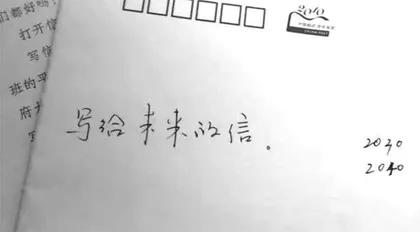 们都好吗
打开信
写信
班的平
府
2010
写给未来的信。
2030
2040